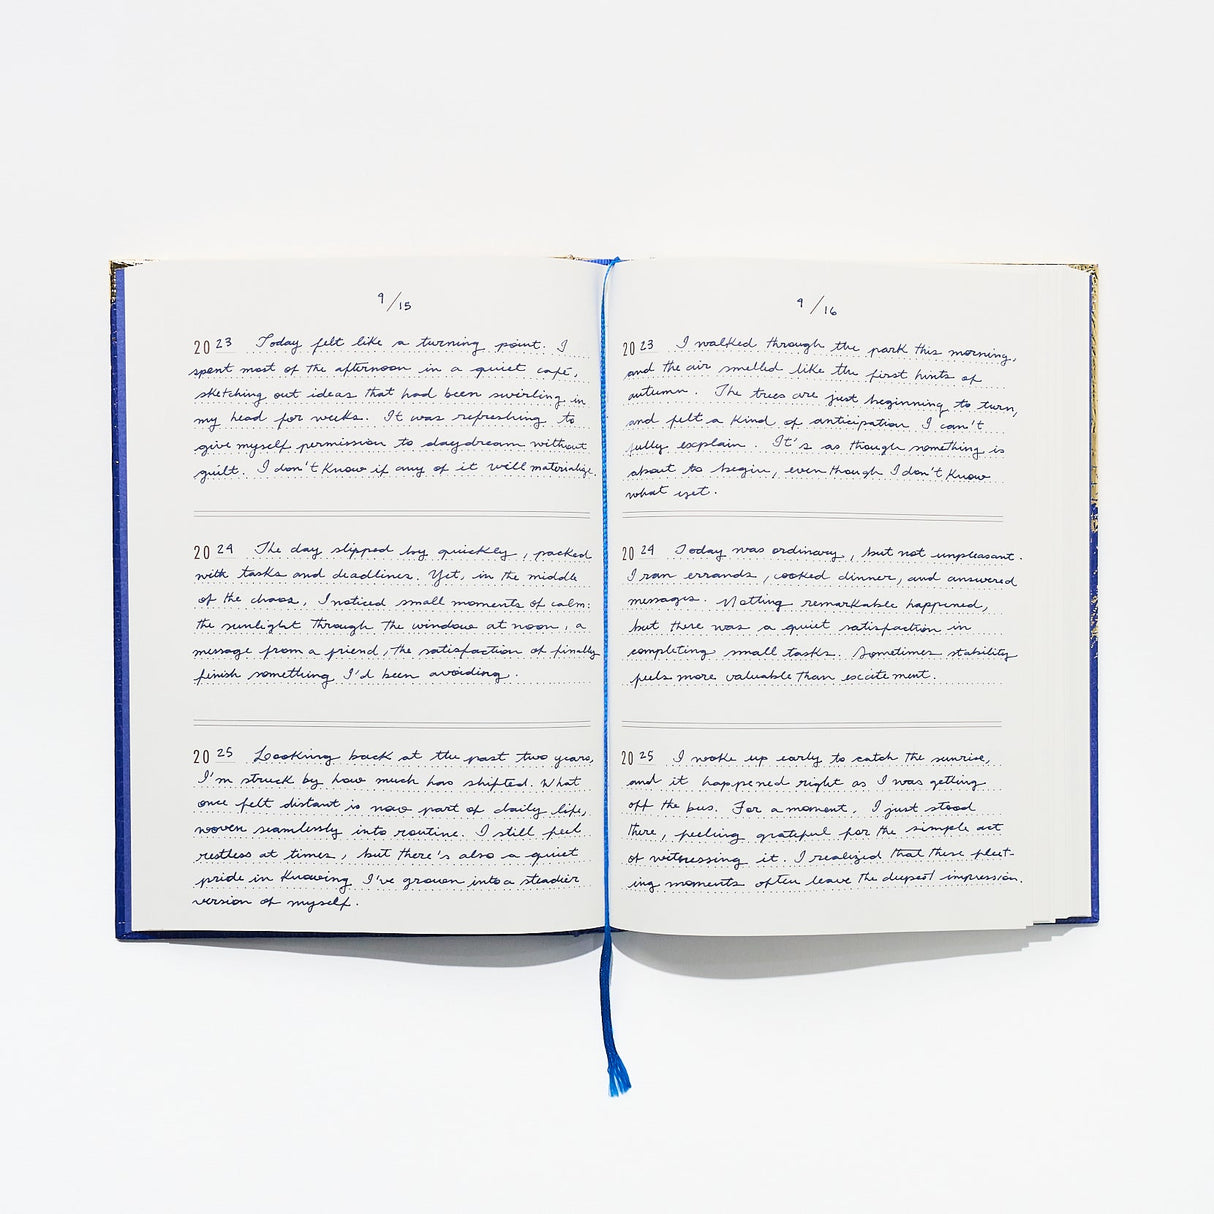 9/15
2023 Today felt like a turning point. I
spent most of the afternoon in a quiet café,
sketching out ideas that had been swirling in
my head for weeks. It was refreshing to
give myself permission to daydream without
guilt. I don't know if any of it will materialize.
2024 The day slipped by quickly, packed
with tasks and deadlines. Yet, in the middle
of the chaos, I noticed small moments of calm:
the sunlight through the window at noon, a
message from a friend, the satisfaction of finally
finish something I'd been avoiding.
2025 Looking back at the past two years,
I'm struck by how much has shifted. What
once felt distant is now part of daily life,
woven seamlessly into routine. I still feel
restless at times, but there's also a quiet
pride in knowing I've grown into a steadier
version of myself.
9/16
2023 I walked through the park this morning,
and the air smelled like the first hints of
autumn. The trees are just beginning to turn,
and felt a kind of anticipation I can't
fully explain. It's as though something is
about to begin, even though I don't know
what yet.
2024 Today was ordinary, but not unpleasant.
I ran errands, cooked dinner, and answered
messages. Nothing remarkable happened,
but there was a quiet satisfaction in
completing small tasks. Sometimes stability
feels more valuable than excitement.
2025 I woke up early to catch the sunrise,
and it happened right as I was getting
off the bus. For a moment, I just stood
there, feeling grateful for the simple act
of witnessing it. I realized that these fleet-
ing moments often leave the deepest impression.